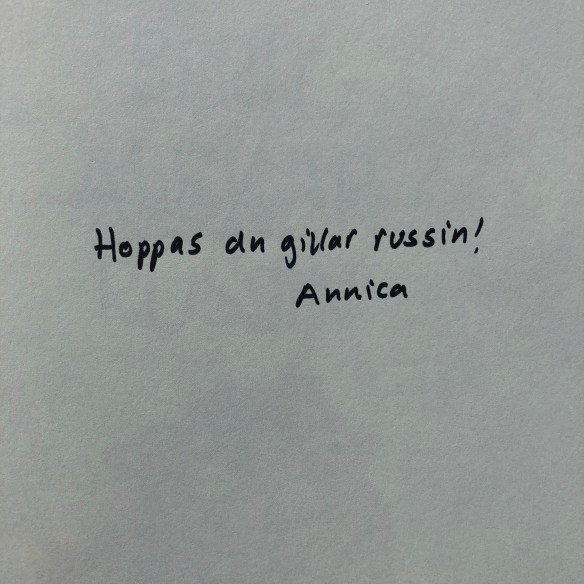 Hoppas du gillar russin!
Annica